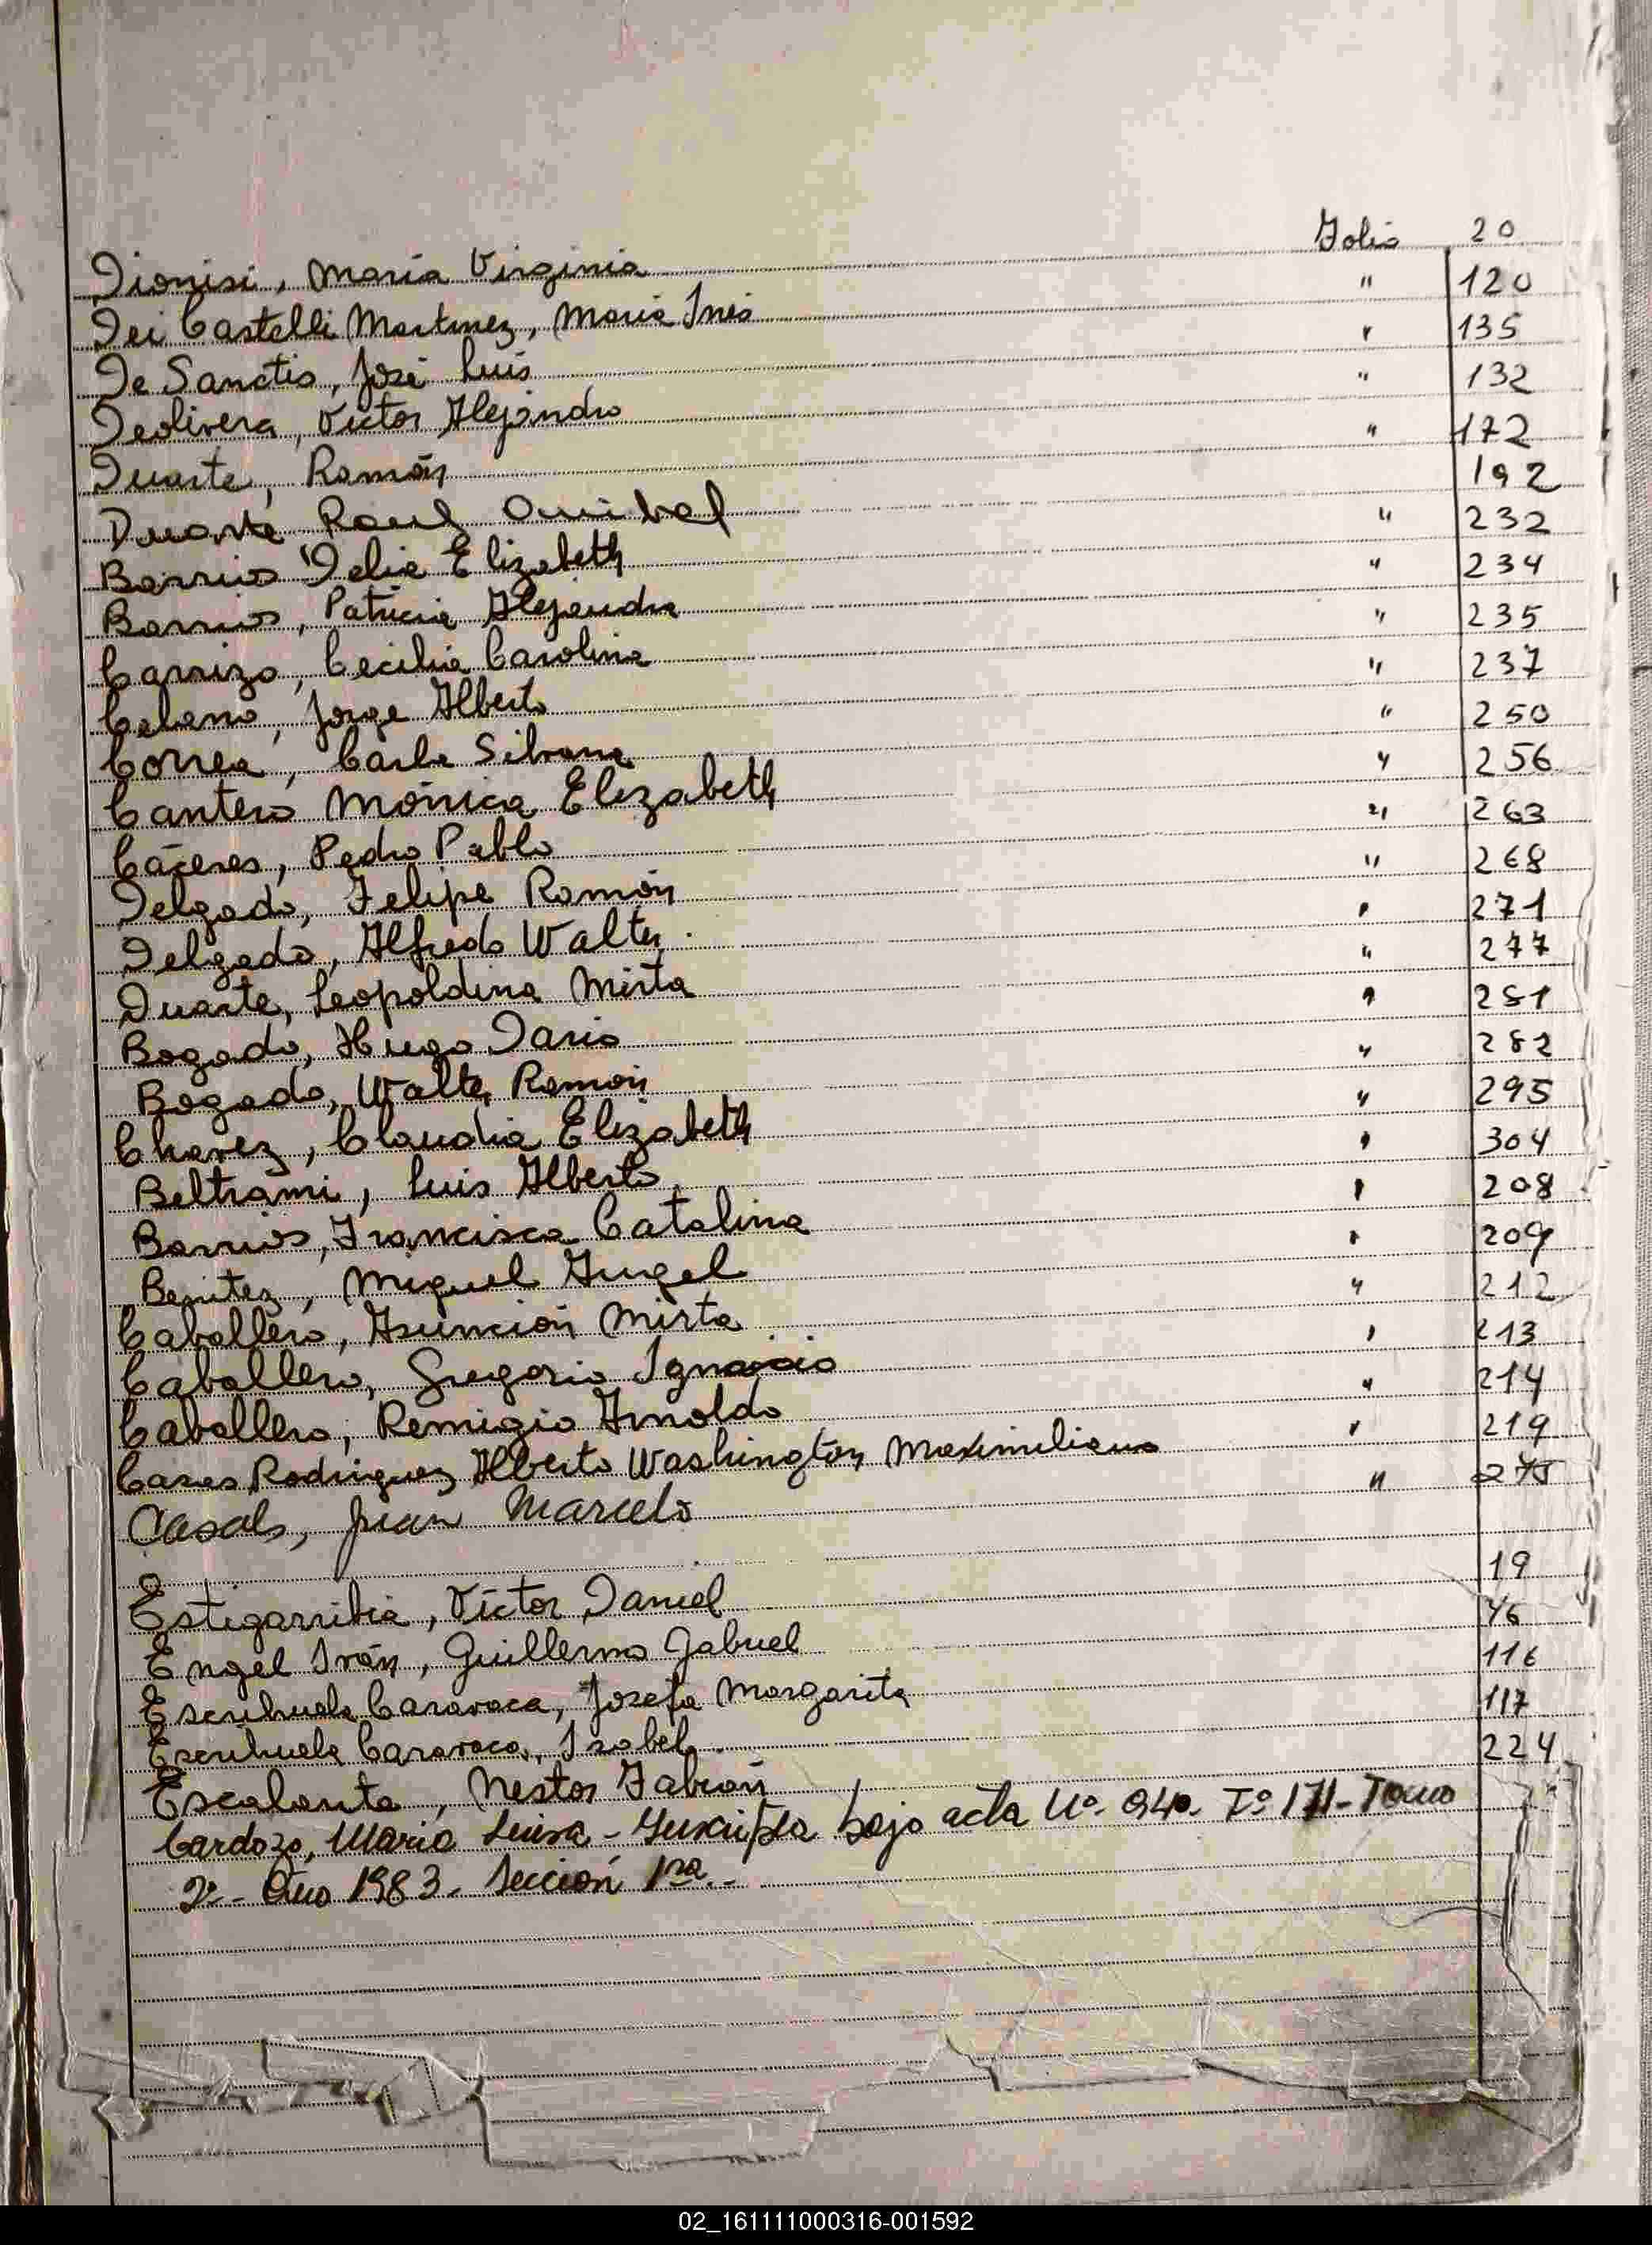 Dionisi, Maria Virginia Folio 20
Dei Castelli Martinez, Maria Inés " 120
De Sanctis, José Luis " 135
Deolivera, Victor Alejandro " 132
Duarte, Ramón " 172
Duarte Raul Anibal 192
Barrios Delia Elizabeth " 232
Barrios, Patricia Alejandra " 234
Carrizo, Cecilia Carolina " 235
Celano, Jorge Alberto " 237
Correa, Carla Silvana " 250
Cantero Mónica Elizabeth " 256
Cáceres, Pedro Pablo " 263
Delgado, Felipe Ramón " 268
Delgado, Alfredo Walter " 271
Duarte, Leopoldina Mirta " 277
Bogado, Hugo Dario " 281
Bogado, Walter Ramón " 282
Chavez, Claudia Elizabeth " 295
Beltrami, Luis Alberto " 304
Barrios, Francisca Catalina " 208
Benitez, Miguel Angel " 209
Caballero, Asunción Mirta " 212
Caballero, Gregorio Ignacio " 213
Caballero, Remigio Arnoldo " 214
Cases Rodriguez Alberto Washington Maximiliano " 219
Casals, Juan Marcelo " 275
Estigarribia, Víctor Daniel 19
Engel Iván, Guillermo Gabriel 46
Escrihuela Caravaca, Josefa Margarita 116
Escrihuela Caravaca, Isabel 117
Escalante, Nestor Fabián 224
Cardozo, Maria Luisa - Inscripta bajo acta Nº 940- Tº 171- Tomo
2º- Año 1983- Sección 1ra.-
02_161111000316-001592